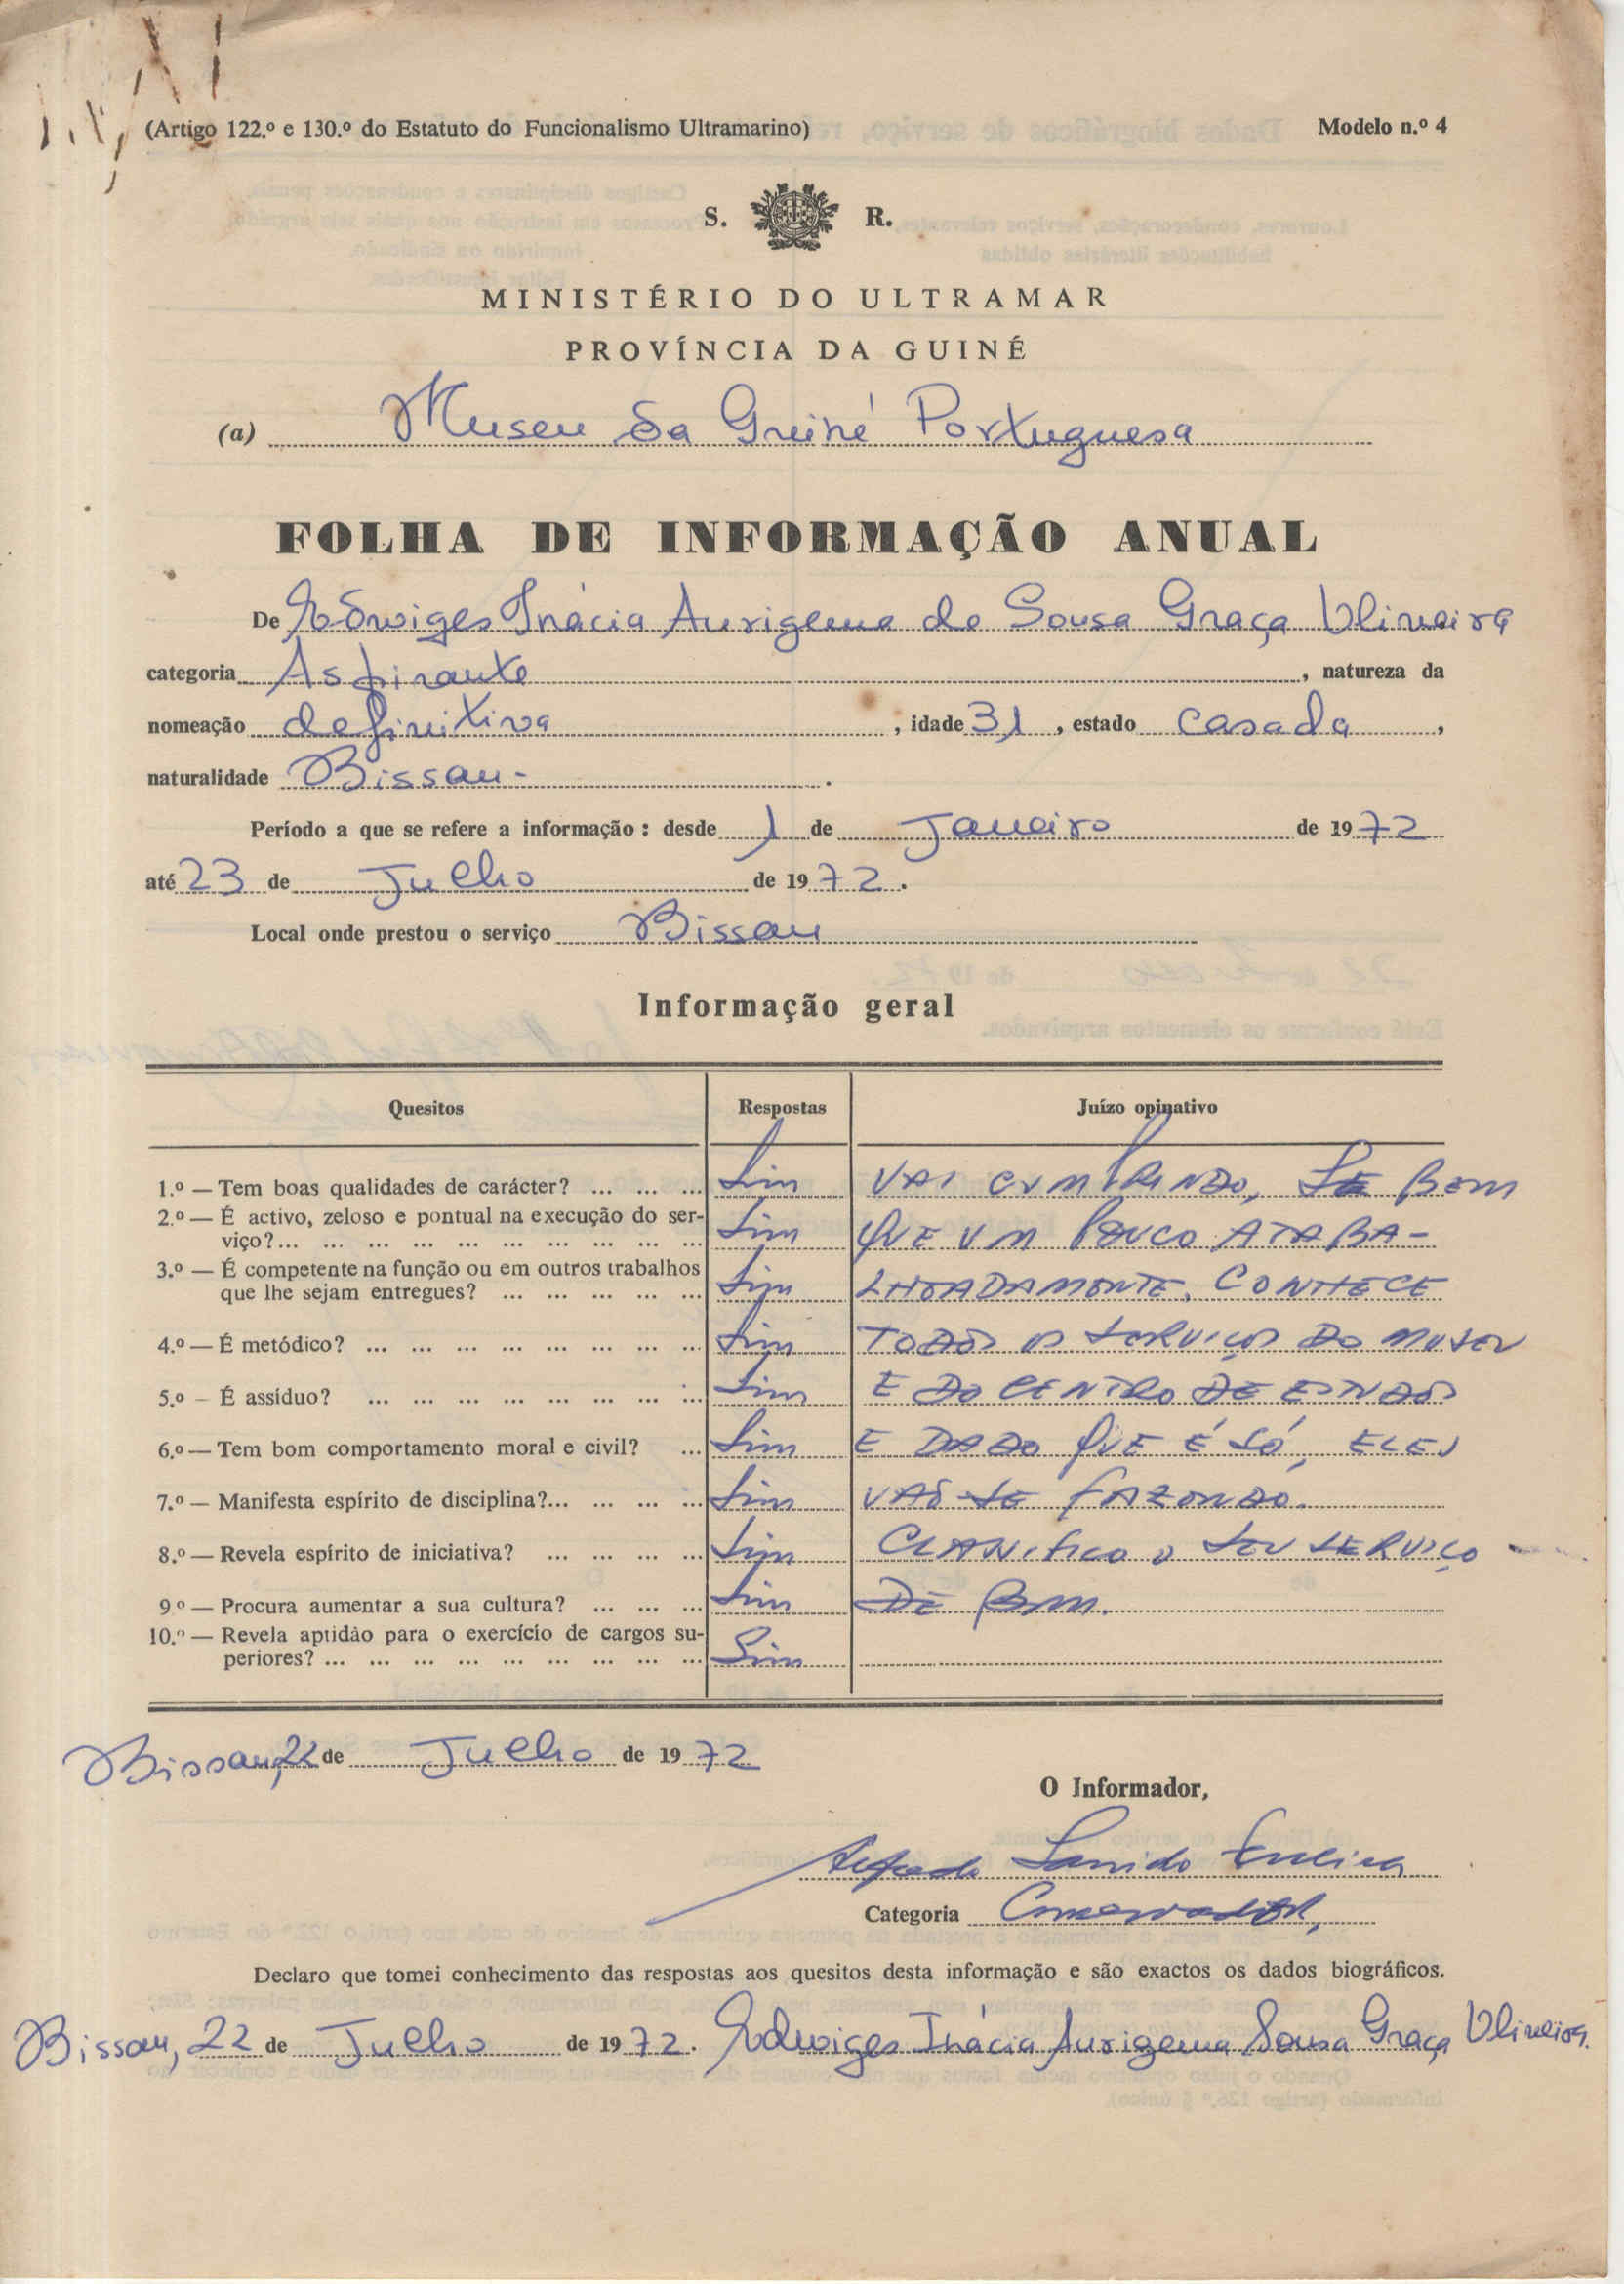 (Artigo 122.º e 130.º do Estatuto do Funcionalismo Ultramarino) Modelo n.º 4
S. R.
MINISTÉRIO DO ULTRAMAR
PROVÍNCIA DA GUINÉ
(a) Museu da Guiné Portuguesa
FOLHA DE INFORMAÇÃO ANUAL
De Edwiges Inácia Aurigema de Sousa Graça Oliveira
categoria Aspirante, natureza da
nomeação definitiva, idade 31, estado casada,
naturalidade Bissau-.
Período a que se refere a informação: desde 1 de Janeiro de 1972
até 23 de Julho de 1972.
Local onde prestou o serviço Bissau
Informação geral
Quesitos Respostas Juízo opinativo
1.º — Tem boas qualidades de carácter? ... ... ... Sim VAI CUMPRINDO, SE BEM
2.º — É activo, zeloso e pontual na execução do ser-
viço?... ... ... ... ... ... ... ... ... ... Sim QUE UM POUCO ATABA-
3.º — É competente na função ou em outros trabalhos
que lhe sejam entregues? ... ... ... ... ... Sim LHOADAMENTE. CONHECE
4.º — É metódico? ... ... ... ... ... ... ... ... Sim TODOS OS SERVIÇOS DO MUSEU
5.º – É assíduo? ... ... ... ... ... ... ... ... Sim E DO CENTRO DE ESTUDOS
6.º — Tem bom comportamento moral e civil? ... Sim E DADO QUE É SÓ, ELES
7.º — Manifesta espírito de disciplina?... ... ... ... Sim VÃO-SE FAZENDO.
8.º — Revela espírito de iniciativa? ... ... ... ... Sim CLASSIFICO O SEU SERVIÇO
9º — Procura aumentar a sua cultura? ... ... ... Sim DE BOM.
10.º — Revela aptidão para o exercício de cargos su-
periores? ... ... ... ... ... ... ... ... ... Sim
Bissau, 22 de Julho de 1972
O Informador,
Alfredo
Categoria Conservador,
Declaro que tomei conhecimento das respostas aos quesitos desta informação e são exactos os dados biográficos.
Bissau, 22 de Julho de 1972. Edwiges Inácia Aurigema Sousa Graça Oliveira.